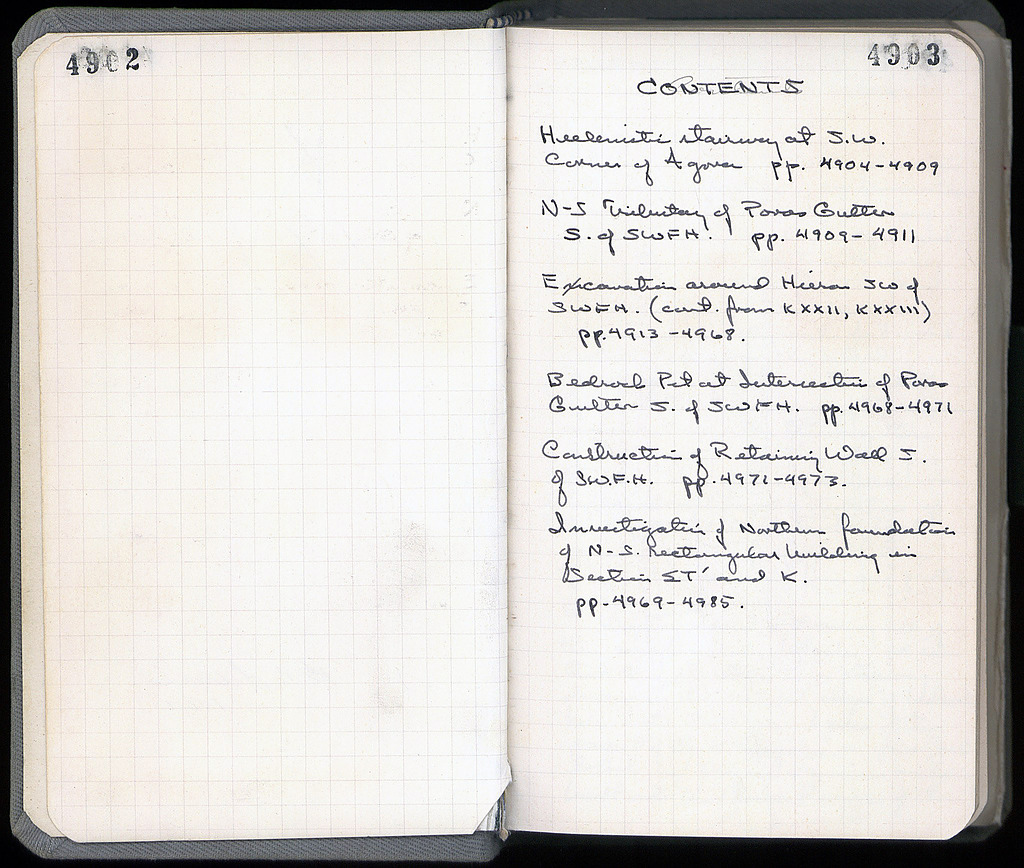 4902
4903
CONTENTS
Hellenistic stairway at S.W.
Corner of Agora pp. 4904-4909
N-S Tributary of Poros Gutter
S. of SWFH. pp. 4909-4911
Excavation around Hieron SW of
SWFH. (cont. from KXXII, KXXIII)
pp. 4913-4968.
Bedrock Pit at Intersection of Poros
Gutter S. of SWFH. pp. 4968-4971
Construction of Retaining Wall S.
of S.W.F.H. pp. 4971-4973.
Investigation of Northern foundation
of N-S. rectangular building in
Section ST' and K.
pp. 4969-4985.